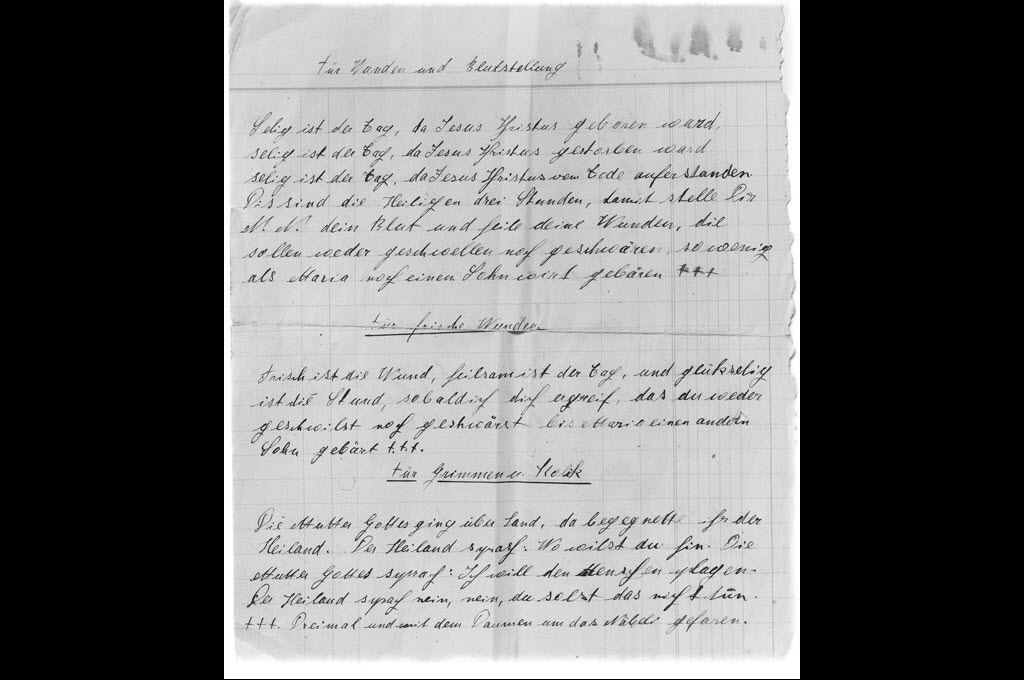 Für Wunden und Blutstellung
Selig ist der Tag, da Jesus Christus geboren ward,
selig ist der Tag, da Jesus Christus gestorben ward
selig ist der Tag, da Jesus Christus vom Tode auferstanden
Dis sind die Heiligen drei Stunden, damit stelle Dir
N. N. dein Blut und heile deine Wunden, die
sollen weder geschwellen noch geschwären, so wenig
als Maria noch einen Sohn wirt gebären +++
Für frische Wunden
Frisch ist die Wund, heilsam ist der Tag, und glükselig
ist die Stund, sobald ich dich ergreif, das du weder
geschwilst noch geshwärst bis Maria einen andern
Sohn gebärt +.+.+.
Für Grimmen u. Kolik
Die Mutter Gottes ging über Land, da begegnette ihr der
Heiland. Der Heiland sprach: Wo wilst du hin. Die
Mutter Gottes sprach: Ich will den Menschen plagen.
Der Heiland sprach nein, nein, du solst das nicht tun.
+++. Dreimal und mit dem Daumen um das Näbeli gefaren.